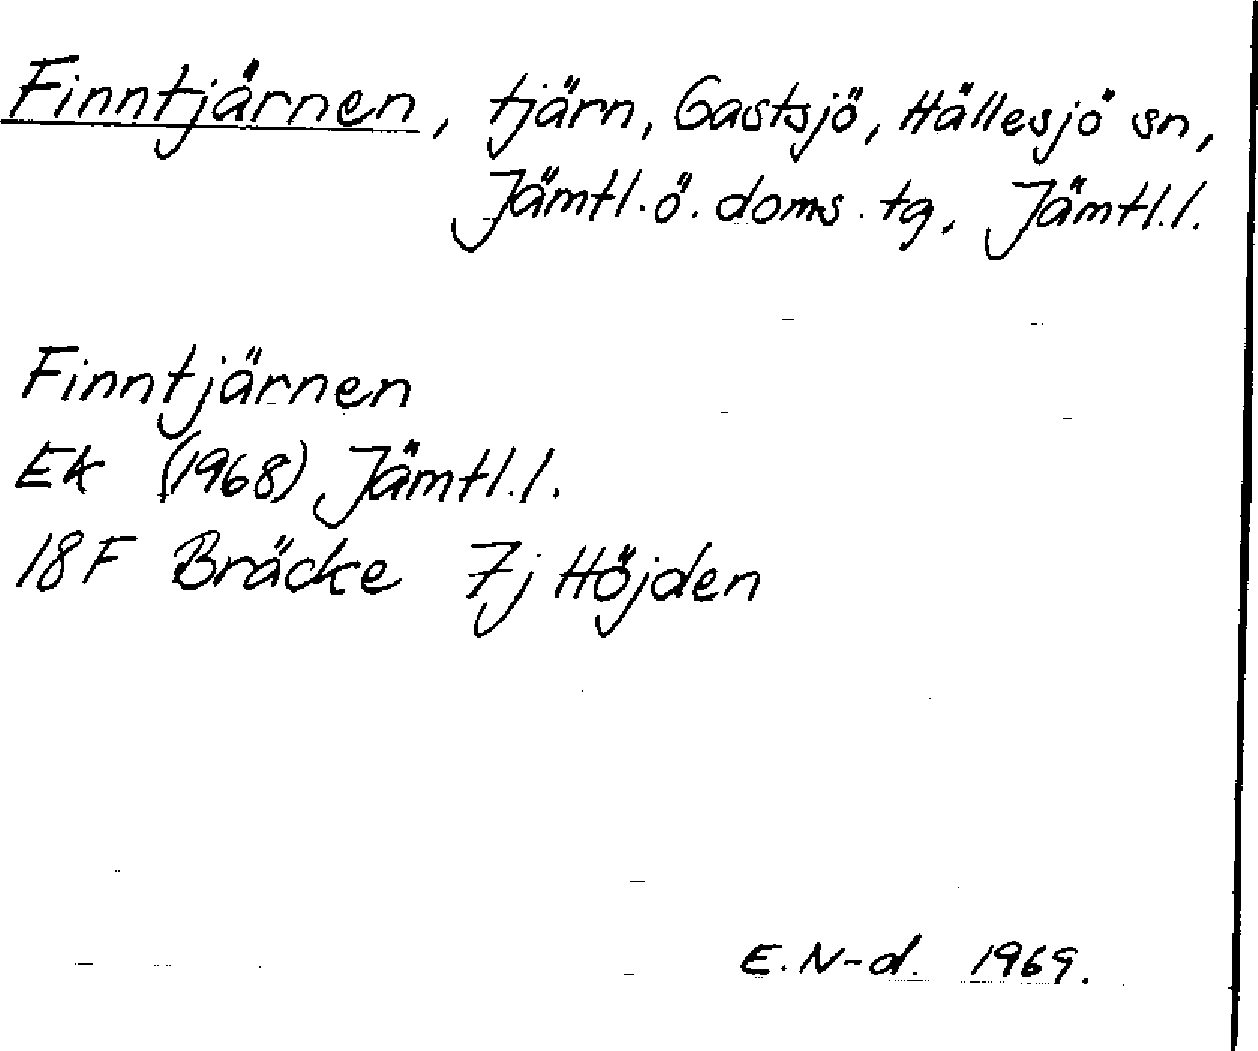 Finntjärnen, tjärn, Gastsjö, Hällesjö sn,
Jämtl. ö. doms. tg, Jämtl. l.
Finntjärnen
EK (1968) Jämtl. l.
18F Bräcke 7j Höjden
E. N-d. 1969.